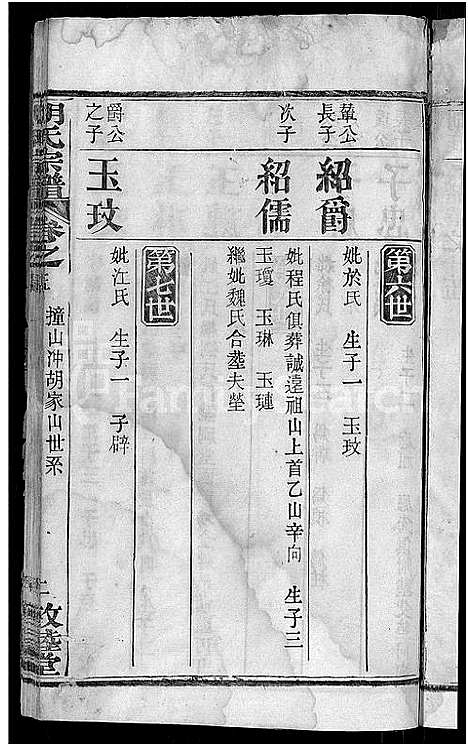 第六世
鞏公長子
紹爵
妣於氏 生子一 玉玟
次子
紹儒
妣程氏俱葬誠遠祖山上首乙山辛向 生子三
玉瓊 玉琳 玉璉
繼妣魏氏合塟夫塋
第七世
爵公之子
玉玟
妣江氏 生子一 子辟
胡氏宗譜 卷之五 撞山冲胡家山世系 敦睦堂